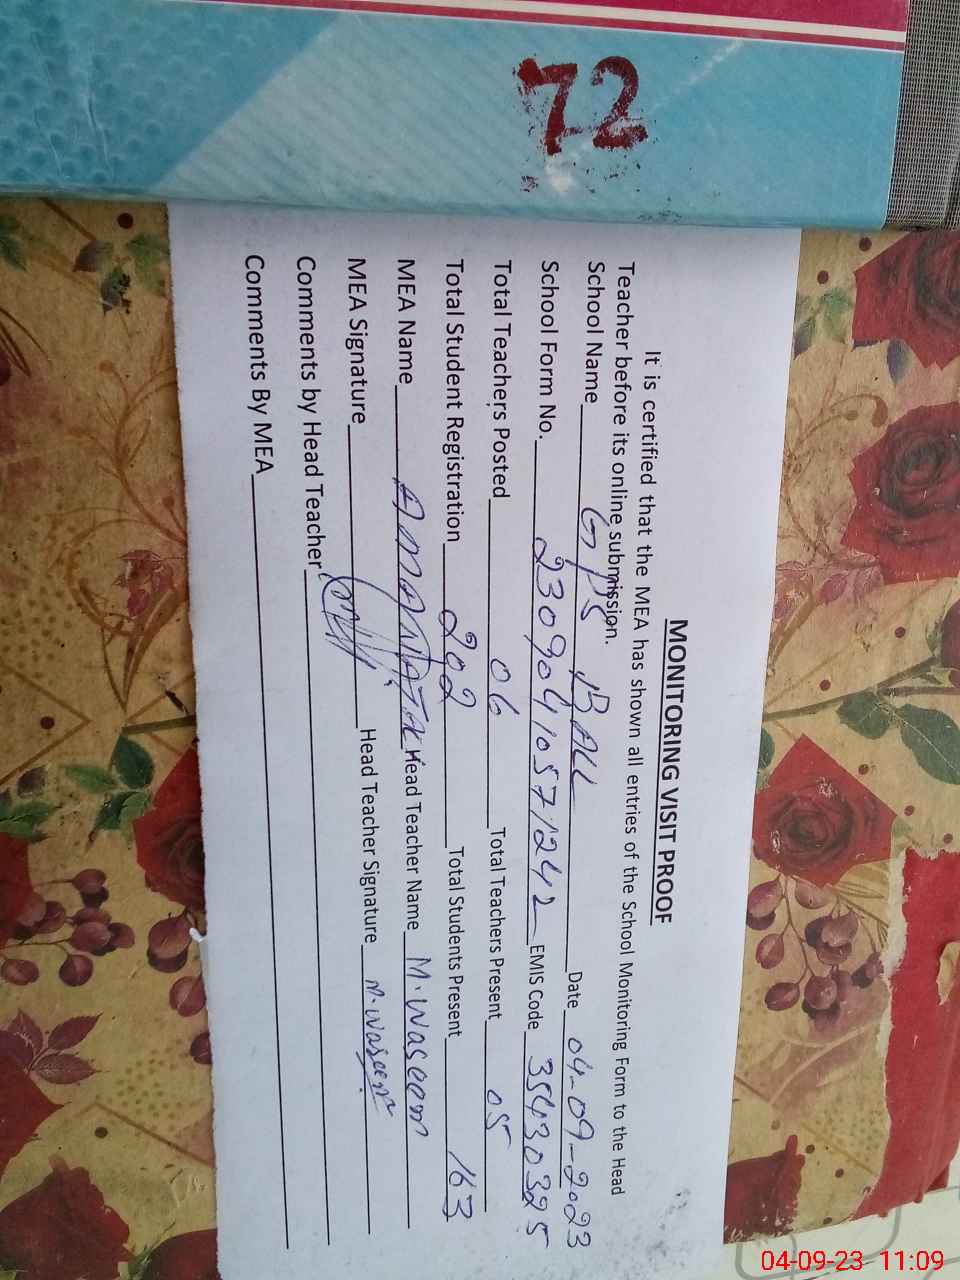 72
MONITORING VISIT PROOF
It is certified that the MEA has shown all entries of the School Monitoring Form to the Head
Teacher before its online submission.
School Name GPS BALL Date 04-09-2023
School Form No. 23090410571242 EMIS Code 35430325
Total Teachers Posted 06 Total Teachers Present 05
Total Student Registration 202 Total Students Present 163
MEA Name Head Teacher Name M. Waseem
MEA Signature Head Teacher Signature M. Waseem
Comments by Head Teacher
Comments By MEA
04-09-23 11:09